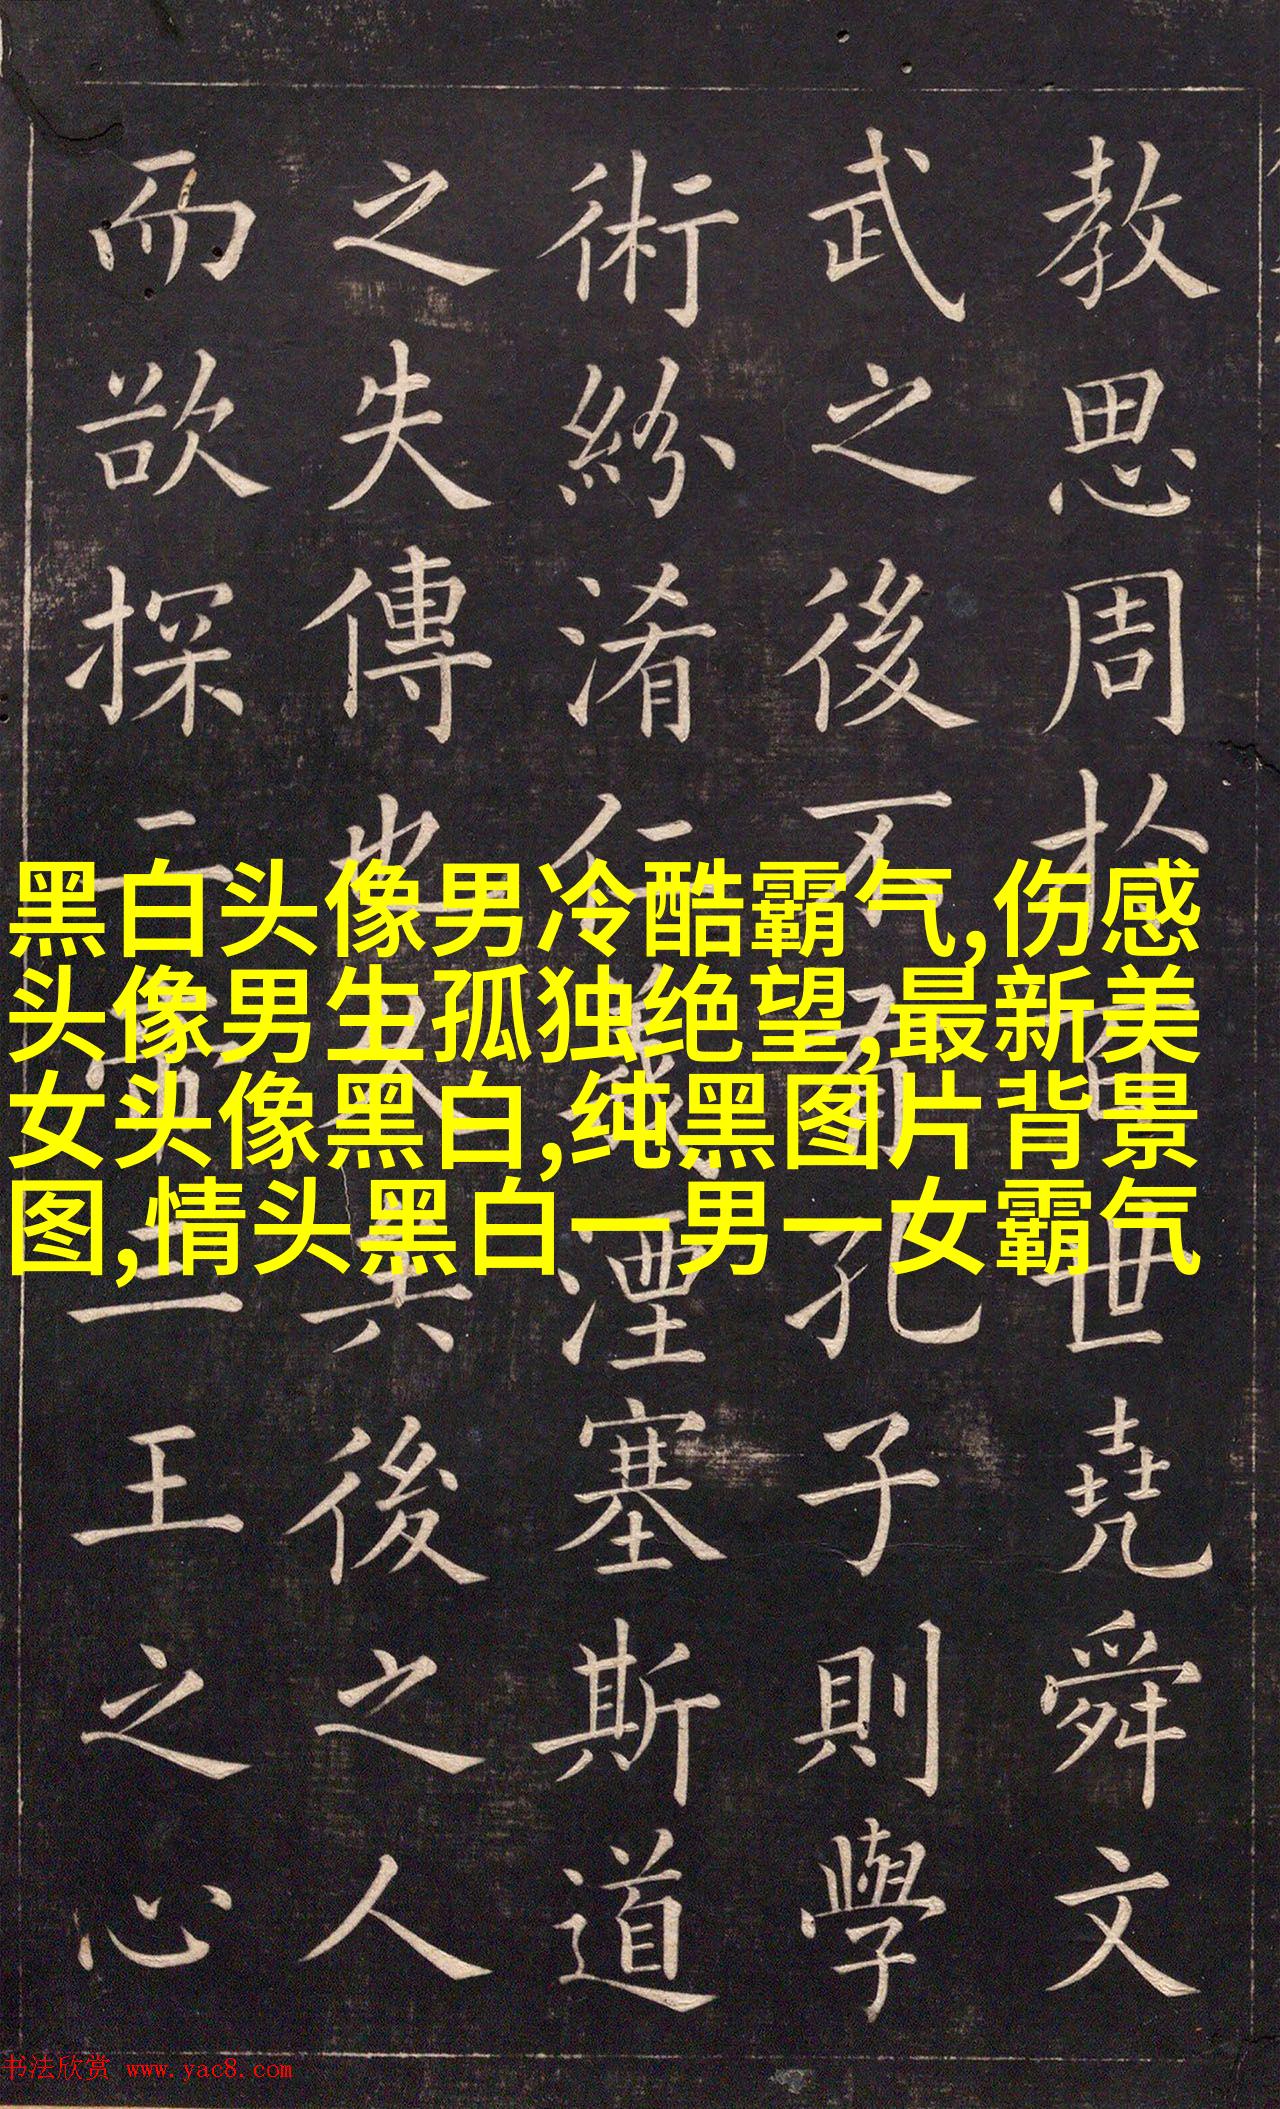 教思周於百世堯舜文
武之後不有孔子則學
術紛淆仁義湮塞斯道
之失傳也久矣後之人
而欲探二帝三王之心
黑白头像男冷酷霸气,伤感
头像男生孤独绝望,最新美
女头像黑白,纯黑图片背景
图,情头黑白一男一女霸气
书法欣赏 www.yac8.com